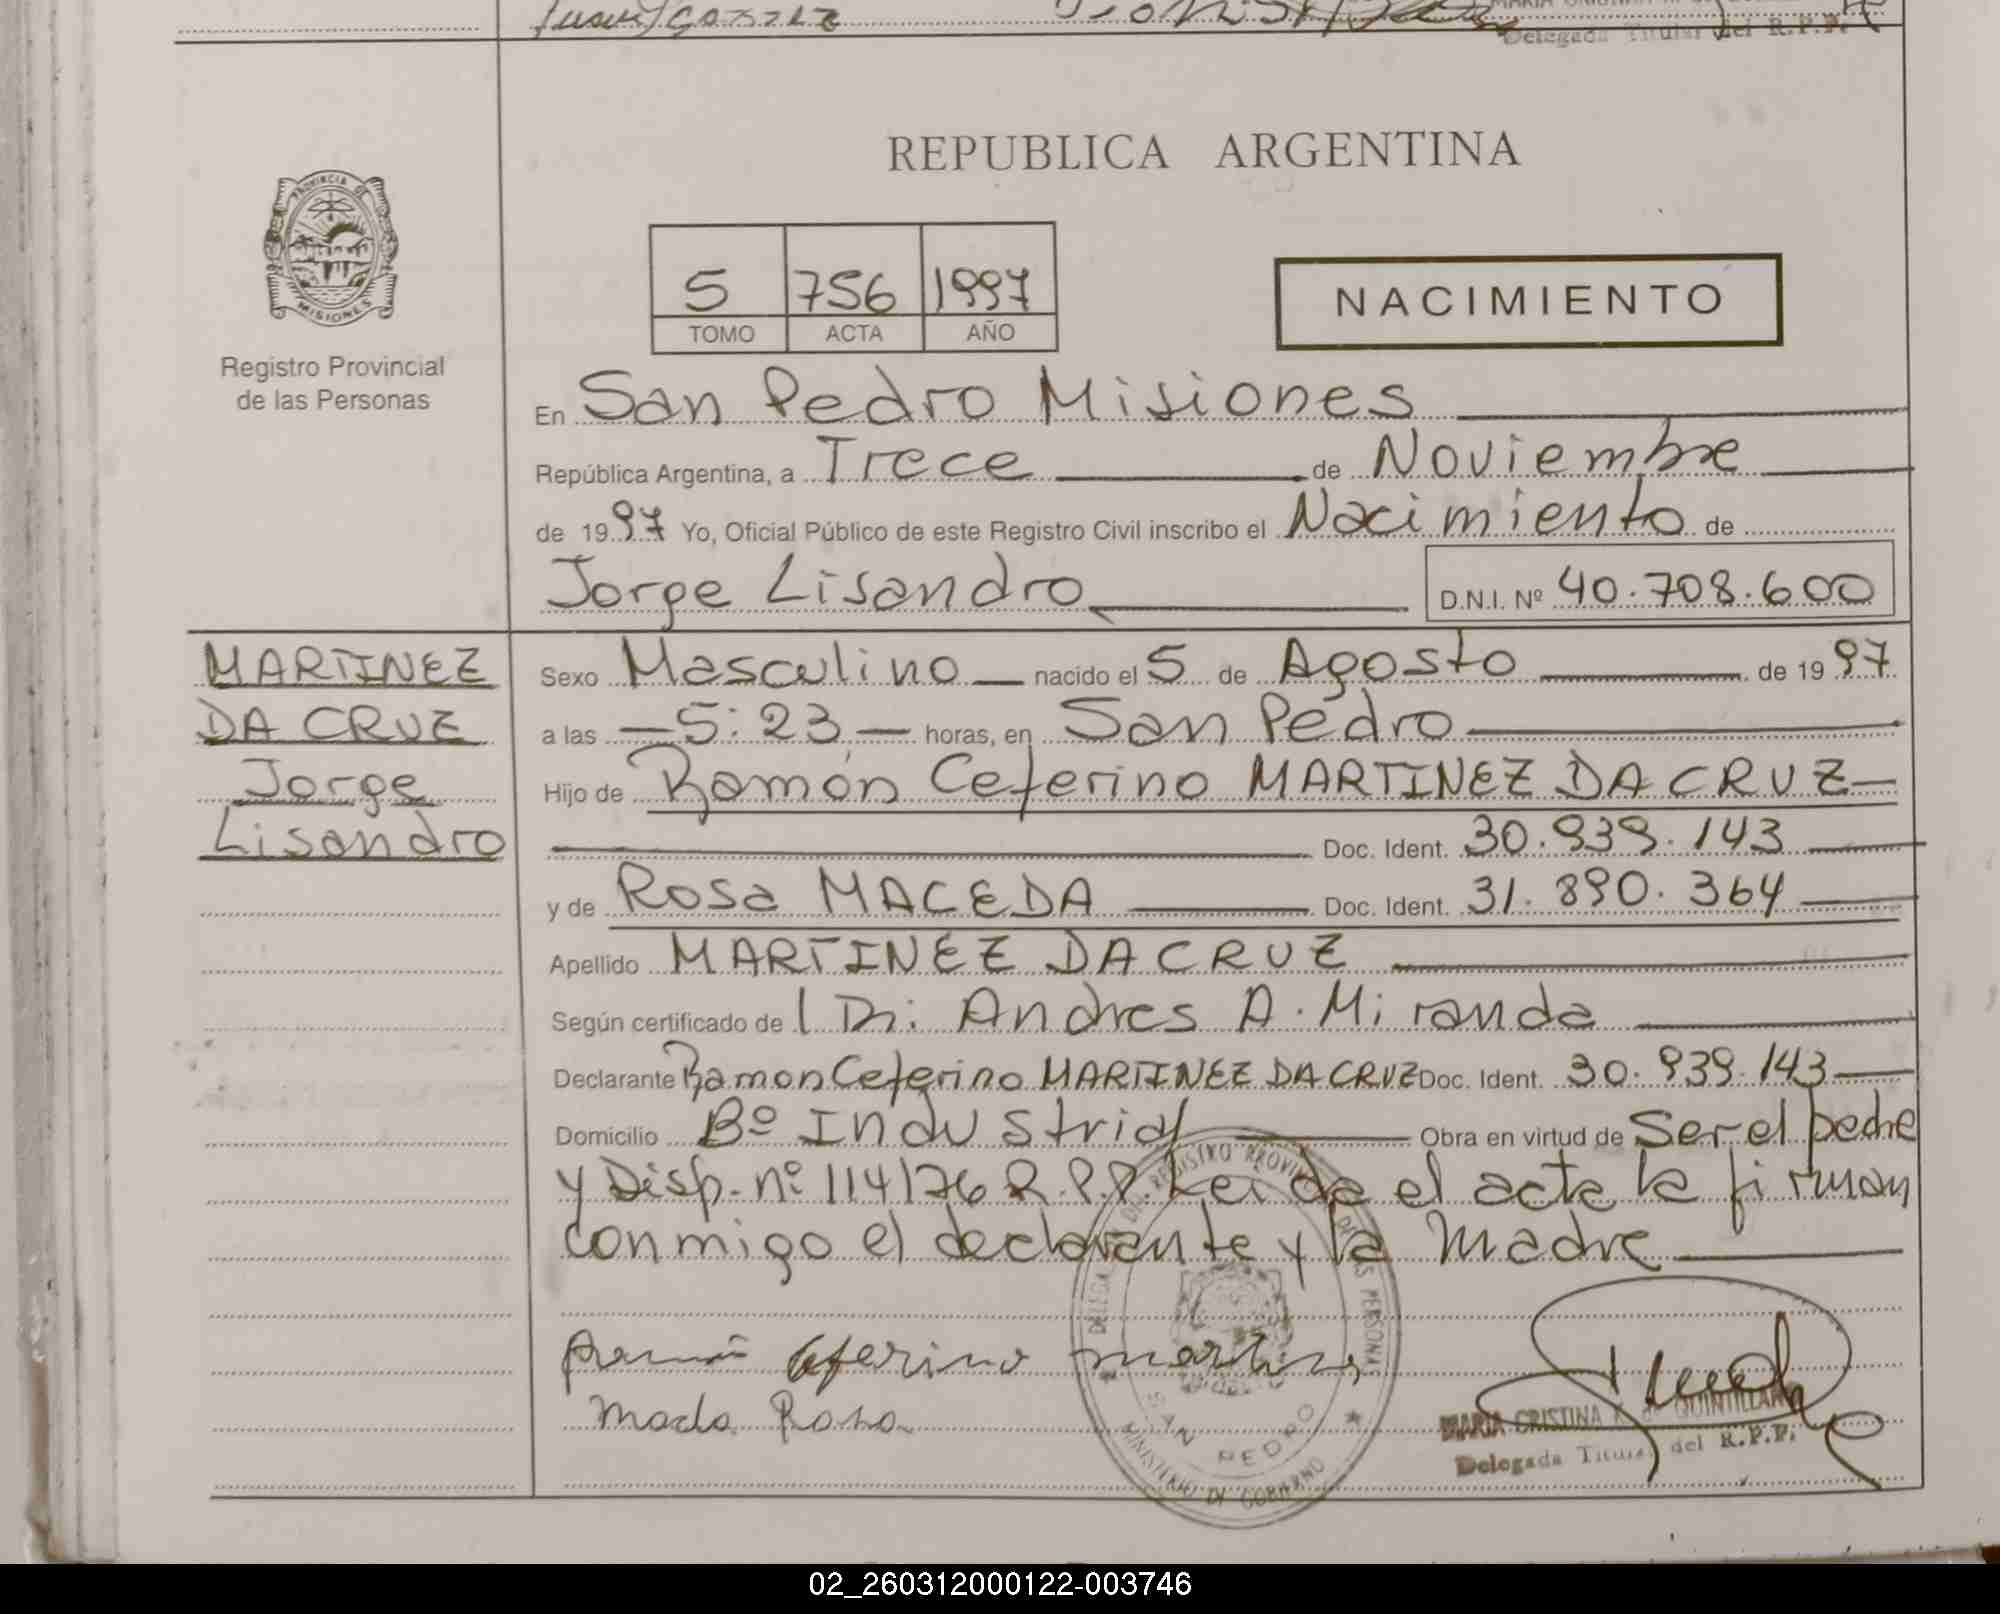 Delegada Titular del R.P.P.
REPUBLICA ARGENTINA
PROVINCIA DE MISIONES
5 756 1997
TOMO ACTA AÑO
NACIMIENTO
Registro Provincial
de las Personas
En San Pedro Misiones
República Argentina, a Trece de Noviembre
de 1997 Yo, Oficial Público de este Registro Civil inscribo el Nacimiento de
Jorge Lisandro D.N.I. Nº 40.708.600
MARTINEZ
DA CRUZ
Jorge
Lisandro
Sexo Masculino nacido el 5 de Agosto de 1997
a las 5:23 horas, en San Pedro
Hijo de Ramón Ceferino MARTINEZ DA CRUZ
Doc. Ident. 30.939.143
y de Rosa MACEDA Doc. Ident. 31.890.364
Apellido MARTINEZ DA CRUZ
Según certificado de l Dr: Andres A. Miranda
Declarante Ramon Ceferino MARTINEZ DA CRUZ Doc. Ident. 30.939.143
Domicilio Bº Industrial Obra en virtud de Ser el padre
y Disp. nº 114/76 R.P.P. Leida el acta la firman
conmigo el declarante y la Madre
Ceferino
Rosa
DELEGA REGISTRO PROVIN DE LAS PERSONAS
SAN PEDRO
MINISTERIO DE GOBIERNO
MARIA CRISTINA K. de QUINTILLAN
Delegada Titular del R.P.P.
02_260312000122-003746